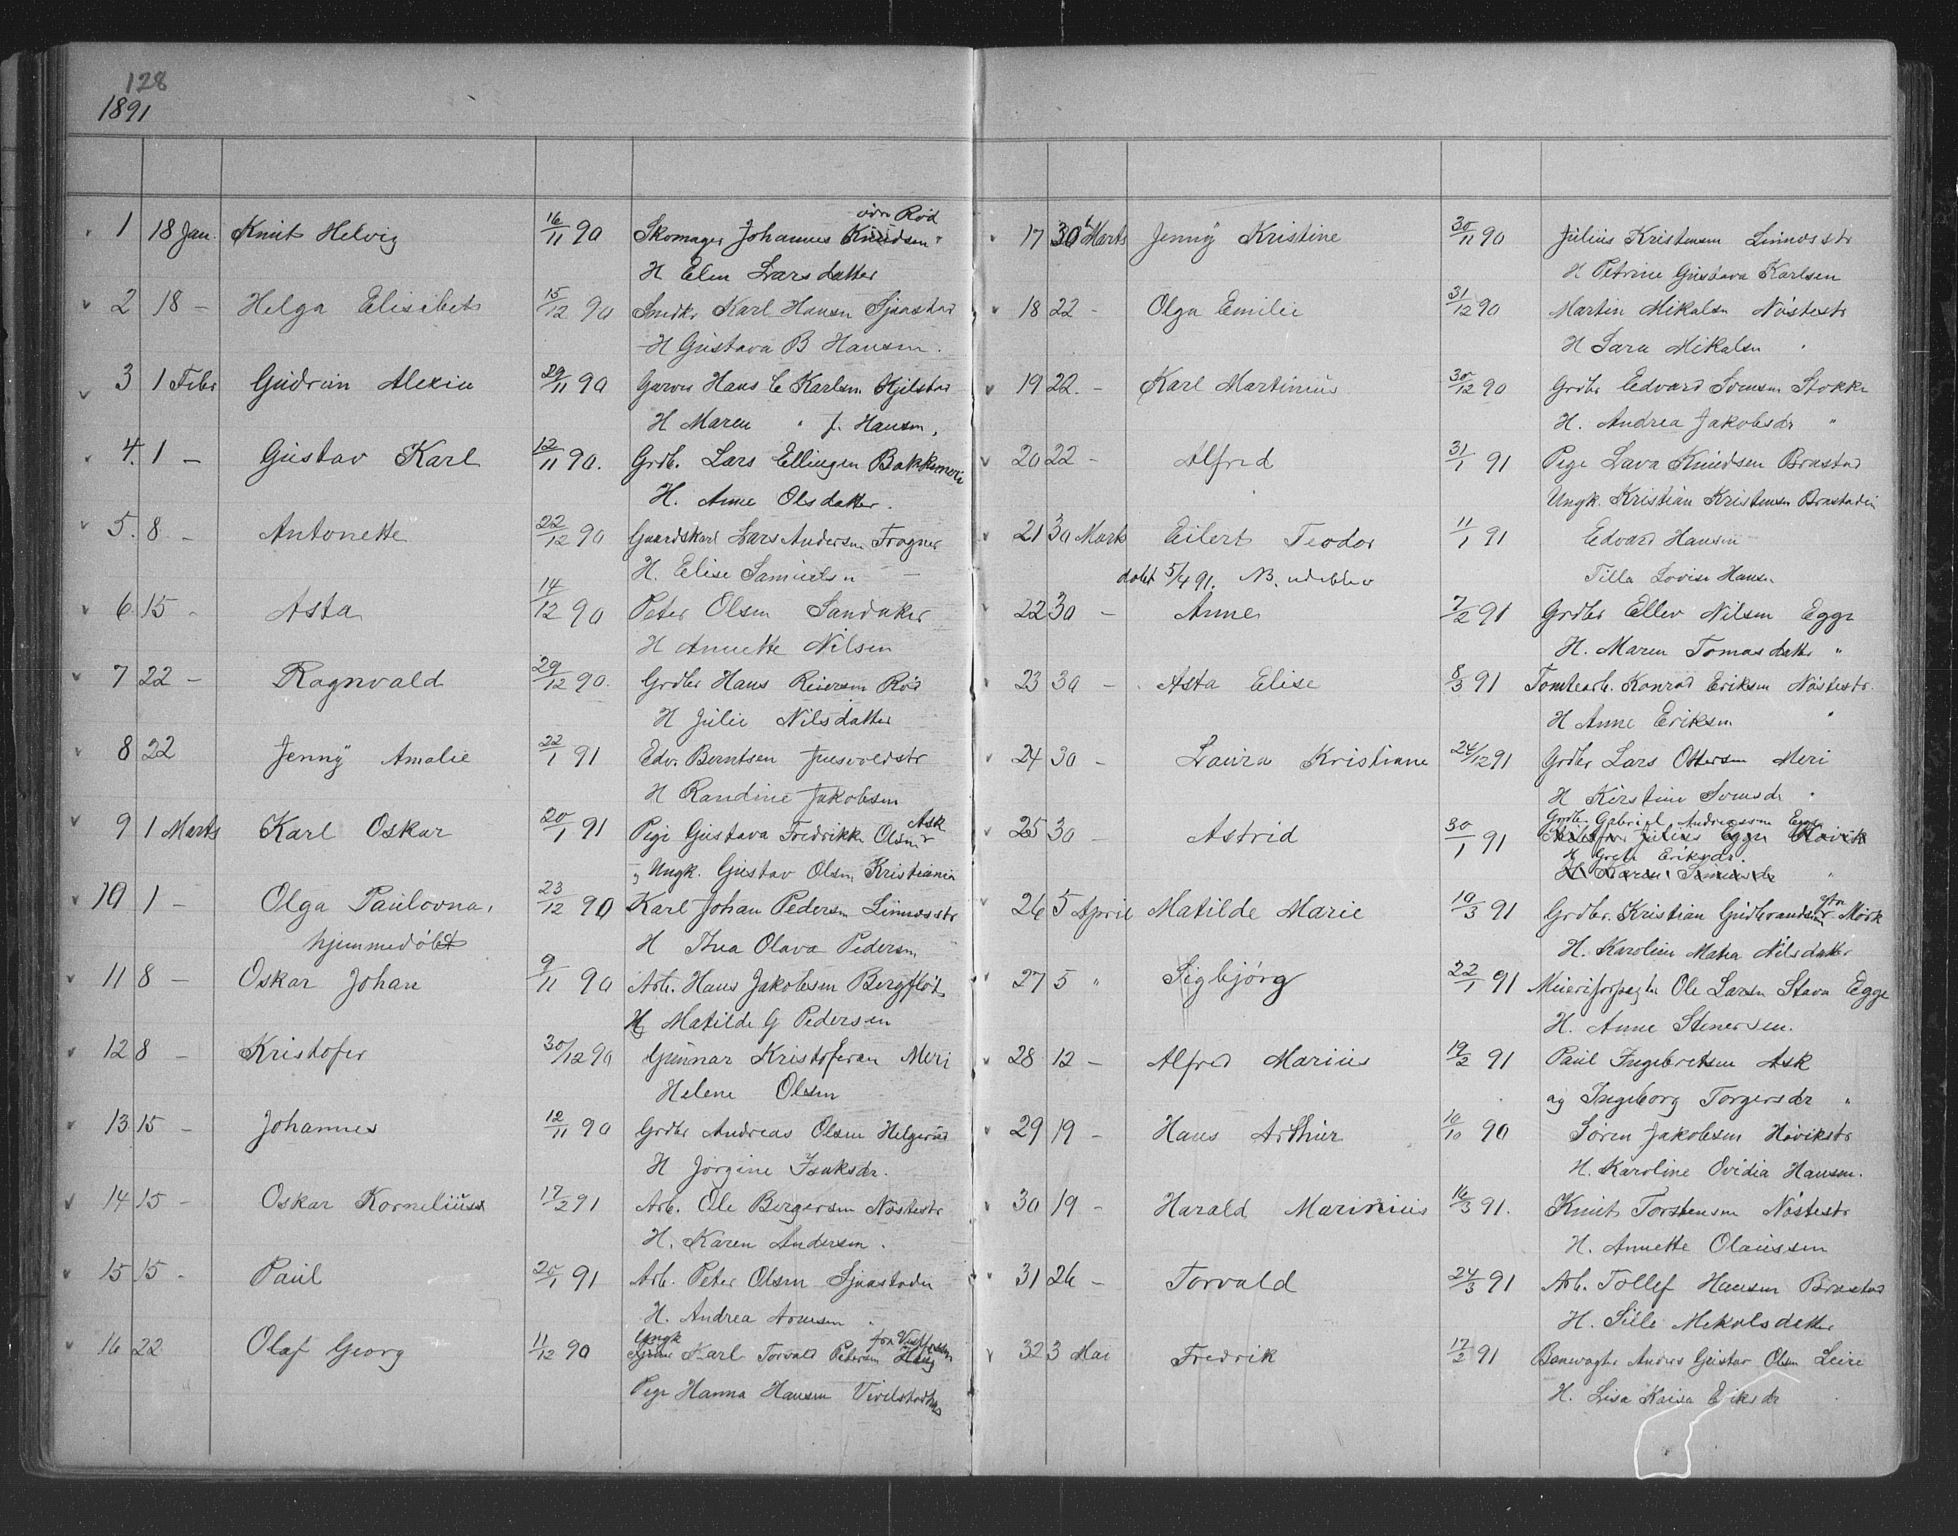 128
1891
1 18 Jan. Knut Helvig 16/11 90 Skomager Johannes Knudsen övre Röd
H Elen Larsdatter
2 18 - Helga Elisabet 15/12 90 Smedkr Karl Hansen Sjaastad
H Gustava B Hansen.
3 1 Febr Gudrun Alexia 29/11 90 Garver Hans C Karlsen Kjilstad
H Maren " J. Hansen,
4. 1 - Gustav Karl 12/11 90. Grdb. Lars Ellingsen Bakkemeri
H. Anne Olsdatter.
5. 8. - Antonette 22/12 90 Gaardskarl Lars Andersen Frogner
H. Elise Samuelsen -
6 15 - Asta 14/12 90 Peter Olsen Sandaker
H Annette Nilsen
7 22 - Ragnvald 29/12 90. Grdbr Hans Reiersen Röd
H Julie Nilsdatter
8 22 Jenny Amalie 22/1 91 Edv. Berntsen
H Randine Jakobsen
9 1 Marts Karl Oskar 20/1 91 Pige Gustava Fredrikke Olsen Ask
og Ungk. Gustav Olsen Kristiania
10 1 - Olga Paulovna, 23/12 90 Karl Johan Pedersen Linnesstr
hjemmedöbt H Thea Olava Pedersen
11 8 - Oskar Johan 9/11 90 Arb. Hans Jakobsen Bergflöt
H Matilde G Pedersen
12 8 - Kristofer 30/12 90 Gunnar Kristofersen Meri
Helene Olsen
13 15 - Johannes 12/11 90 Grdbr Andreas Olsen Helgerud
H Jörgine Isaksdr.
14 15 - Oskar Kornelius 17/2 91 Arb. Ole Bergersen Nöstestr
H. Karen Andersen.
15 15 - Paul 20/1 91 Arb. Peter Olsen Sjaastaden
H. Andrea Arnesen "
16 22 Olaf Georg 11/12 90 Ungk Karl Torvald Petersen Haug
Pige Hanna Hansen
17 30 Marts Jenny Kristine 30/11 90 Julius Kristensen Linnesstr
H Petrine Gustava Karlsen
18 22 - Olga Emilie 31/12 90 Martin Mikalsen Nöstestr
H Sara Mikalsen "
19 22. - Karl Martinius 30/12 90 Grdbr Edvard Svensen Stokke
H. Andrea Jakobsdr "
20 22 - Alfred 31/1 91 Pige Lava Knudsen Brastad
Ungk. Kristian Kristensen Brastadei
21 30 Marts Eilert Teodor 11/1 91 Edvard Hansen
döbt 5/4 91. NB. udeblev Tilla Lovise Hansen
22 30 - Anne 7/2 91 Grdbr Ellev Nilsen Egge
H. Maren Tomasdatter "
23 30 - Asta Elise 8/3 91 Tomtearb. Konrad Eriksen Nöstestr.
H Anne Eriksen "
24 30 - Laura Kristiane 24/12 91 Grdbr Lars Ottersen Meri
H Kirstine Svensdr "
25 30 - Astrid 30/1 91 Grdbr. Gabriel Andreassen Egge
H Grete Eriksdr.
26 5 April Matilde Marie 10/3 91 Grdbr. Kristian Gudbrandsen Mörk
H. Karoline Matea Nilsdatter
27 5 " Sigbjörg 22/1 91 Meieriforpagter Ole Larsen Stava Egge
H. Anne Stenersen.
28 12 - Alfred Marius 19/2 91 Paul Ingebretsen Ask
og Ingeborg Torgersdr "
29 19 - Hans Arthur 10/10 90 Sören Jakobsen Hövikstr
H. Karoline Ovidia Hansen.
30 19 - Harald Marinius 16/3 91. Knut Torstensen Nöstestr
H. Annette Olaussen
31 26 - Torvald 24/3 91 Arb. Tollef Hansen Brastad
H. Sille Mekolsdatter
32 3 Mai Fredrik 17/2 91 Banevagter Anders Gustav Olsen Leire
H. Lisa Kaisa Eriksdr